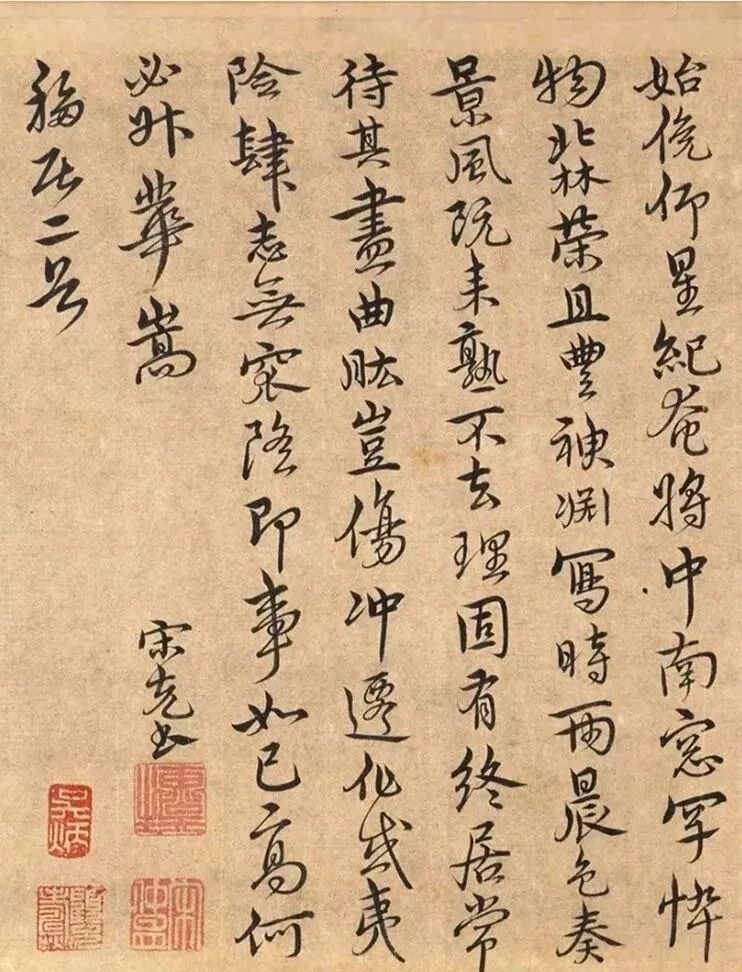 始俛仰星紀奄將中南窓罕悴
物北林榮且豐神淵寫時雨晨色奏
景風既来孰不去理固有終居常
待其盡曲肱豈傷冲遷化或夷
險肆志無窊隆即事如已高何
必升華嵩
移居二首
宋克書